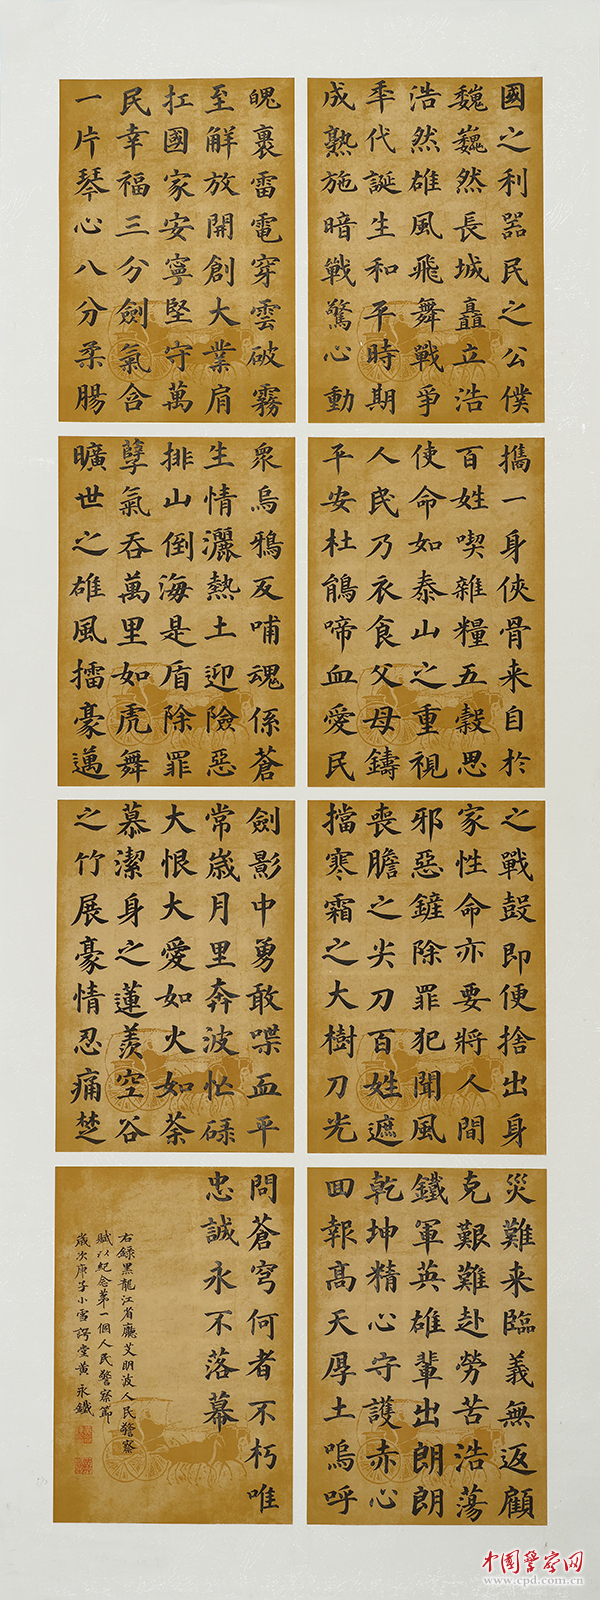 國之利器民之公僕
魏巍然長城矗立浩
浩然雄風飛舞戰爭
秊代誕生和平時期
成熟施暗戰驚心動
魄裏雷電穿雲破霧
至解放開創大業肩
扛國家安寧堅守萬
民幸福三分劍氣含
一片琴心八分柔腸
攜一身俠骨来自於
百姓喫雜糧五穀思
使命如泰山之重視
人民乃衣食父母鑄
平安杜鵑啼血愛民
衆烏鴉反哺魂係蒼
生情灑熱土迎險惡
排山倒海是盾除罪
孽氣吞萬里如虎舞
曠世之雄風擂豪邁
之戰鼓即便捨出身
家性命亦要將人間
邪惡鏟除罪犯聞風
喪膽之尖刀百姓遮
擋寒霜之大樹刀光
劍影中勇敢喋血平
常歲月里奔波忙碌
大恨大愛如火如荼
慕潔身之蓮羨空谷
之竹展豪情忍痛楚
災難来臨義無返顧
克艱難赴勞苦浩蕩
鐵軍英雄輩出朗朗
乾坤精心守護赤心
回報高天厚土嗚呼
問蒼穹何者不朽唯
忠誠永不落幕
右錄黑龍江省廳艾明波人民警察
賦以紀念第一個人民警察節
歲次庚子小雪諤堂黃永鐵
中国警察网
www.cpd.com.cn